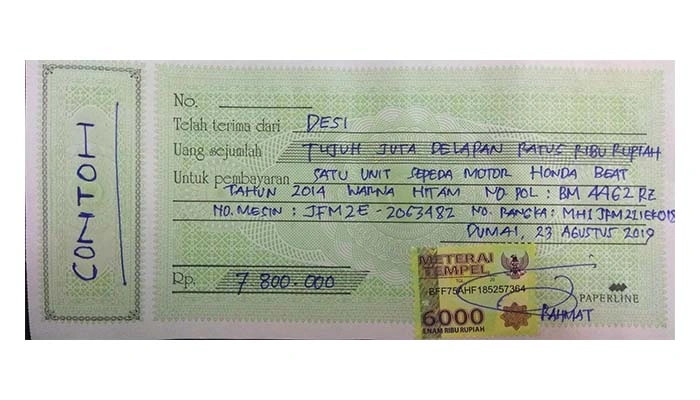 CONTOH
No.
Telah terima dari DESI
Uang sejumlah TUJUH JUTA DELAPAN RATUS RIBU RUPIAH
Untuk pembayaran SATU UNIT SEPEDA MOTOR HONDA BEAT
TAHUN 2014 WARNA HITAM NO. POL : BM 4462 RZ
NO. MESIN : JFM2E - 2063482 NO. RANGKA :
DUMAI, 23 AGUSTUS 2019
Rp. 7 800.000
METERAI
TEMPEL
BFF75AHF185257364
6000
ENAM RIBU RUPIAH
PAPERLINE
RAHMAT